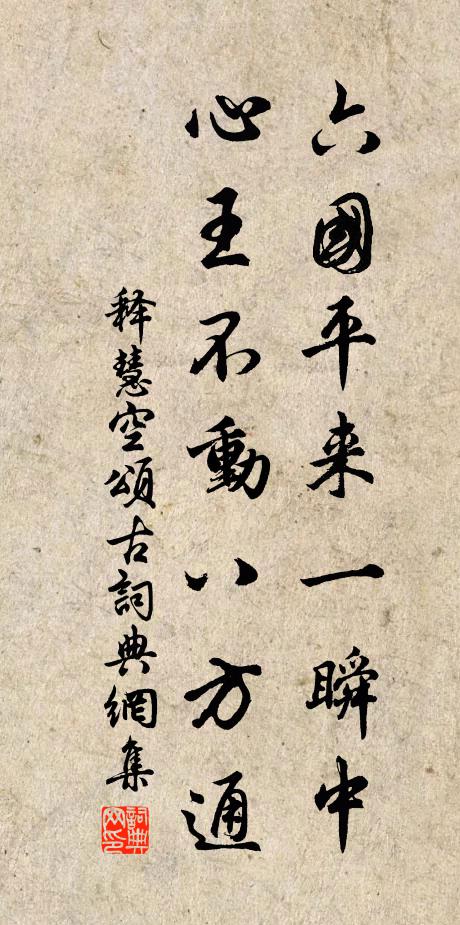 六國平来一瞬中
心王不動八方通
释慧空頌古詞典網集
詞典網印